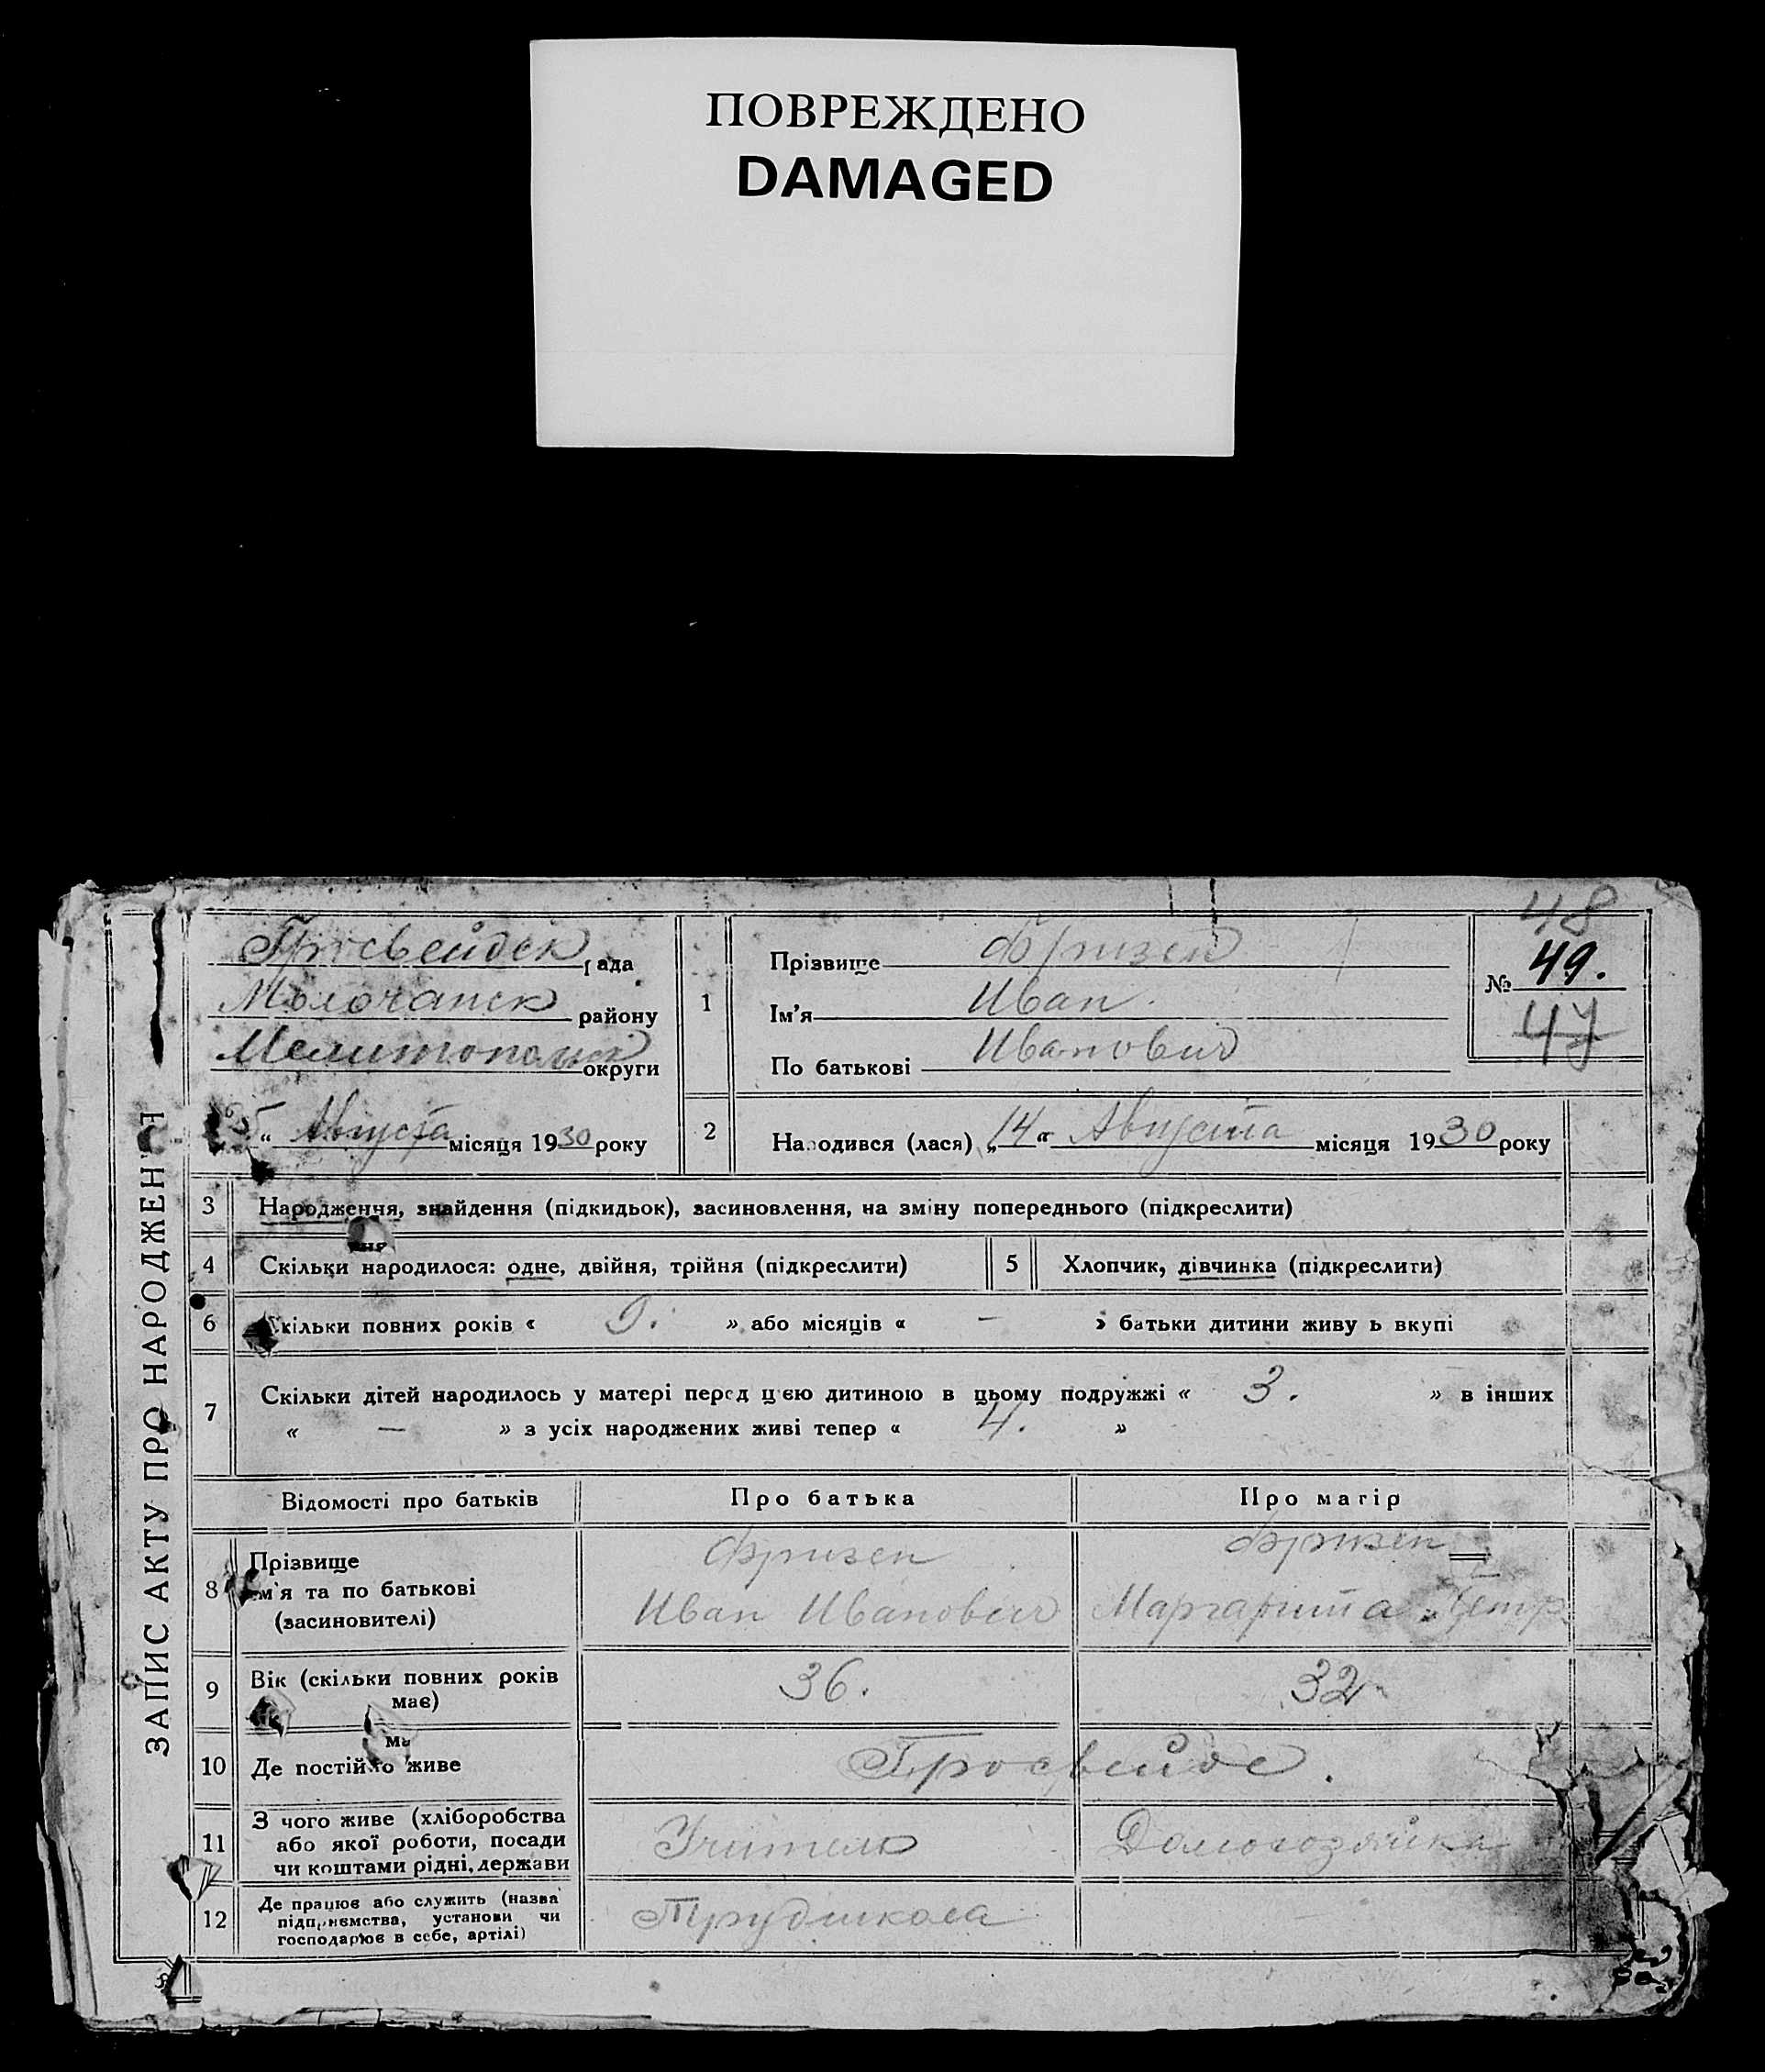 ПОВРЕЖДЕНО
DAMAGED
ЗАПИС АКТУ ПРО НАРОДЖЕННЯ
Гросвейдек рада
Молочанск району
Мелитопольск округи
Августа місяця 1930 року
48
№ 49.
47
1 Прізвище Фризен
Ім'я Иван
По батькові Иванович
2 Народився (лася) „14“ Августа місяця 1930 року
3 Народження, знайдення (підкидьок), засиновлення, на зміну попереднього (підкреслити)
4 Скільки народилося: одне, двійня, трійня (підкреслити) 5 Хлопчик, дівчинка (підкреслити)
6 Скільки повних років « 9. » або місяців « — » батьки дитини живу ь вкупі
7 Скільки дітей народилось у матері перед цією дитиною в цьому подружжі « 3. » в інших
« — » з усіх народжених живі тепер « 4. »
Відомості про батьків Про батька Про матір
8 Прізвище Фризен Фризен
ім'я та по батькові Иван Иванович Маргарита Петр
(засиновителі)
9 Вік (скільки повних років 36. 32
має)
10 Де постійно живе Гросвейде.
11 З чого живе (хліборобства
або якої роботи, посади Учитель Домохозяйка
чи коштами рідні, держави
12 Де працює або служить (назва
підприємства, установи чи Трудшкола —
господарює в себе, артілі)